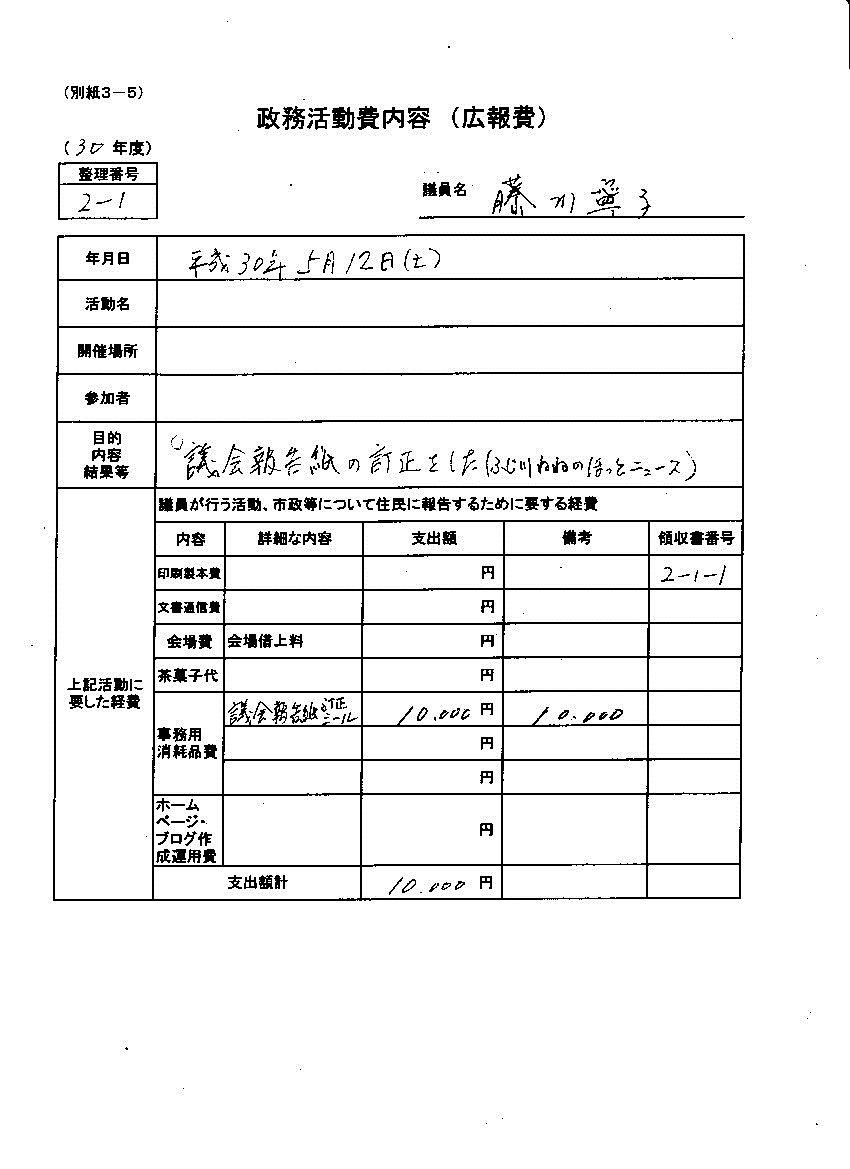 （別紙3－5）
政務活動費内容（広報費）
（30年度）
整理番号
2-1
議員名 藤川寧子
年月日 平成30年5月12日(土)
活動名
開催場所
参加者
目的
内容
結果等
議会報告紙の訂正をした(ふじ川ねねのほっとニュース)
上記活動に
要した経費
議員が行う活動、市政等について住民に報告するために要する経費
内容 詳細な内容 支出額 備考 領収書番号
印刷製本費 円 2-1-1
文書通信費 円
会場費 会場借上料 円
茶菓子代 円
事務用
消耗品費
議会報告紙訂正シール 10.000円 10.000
円
円
ホーム
ページ・
ブログ作
成運用費
円
支出額計 10.000円